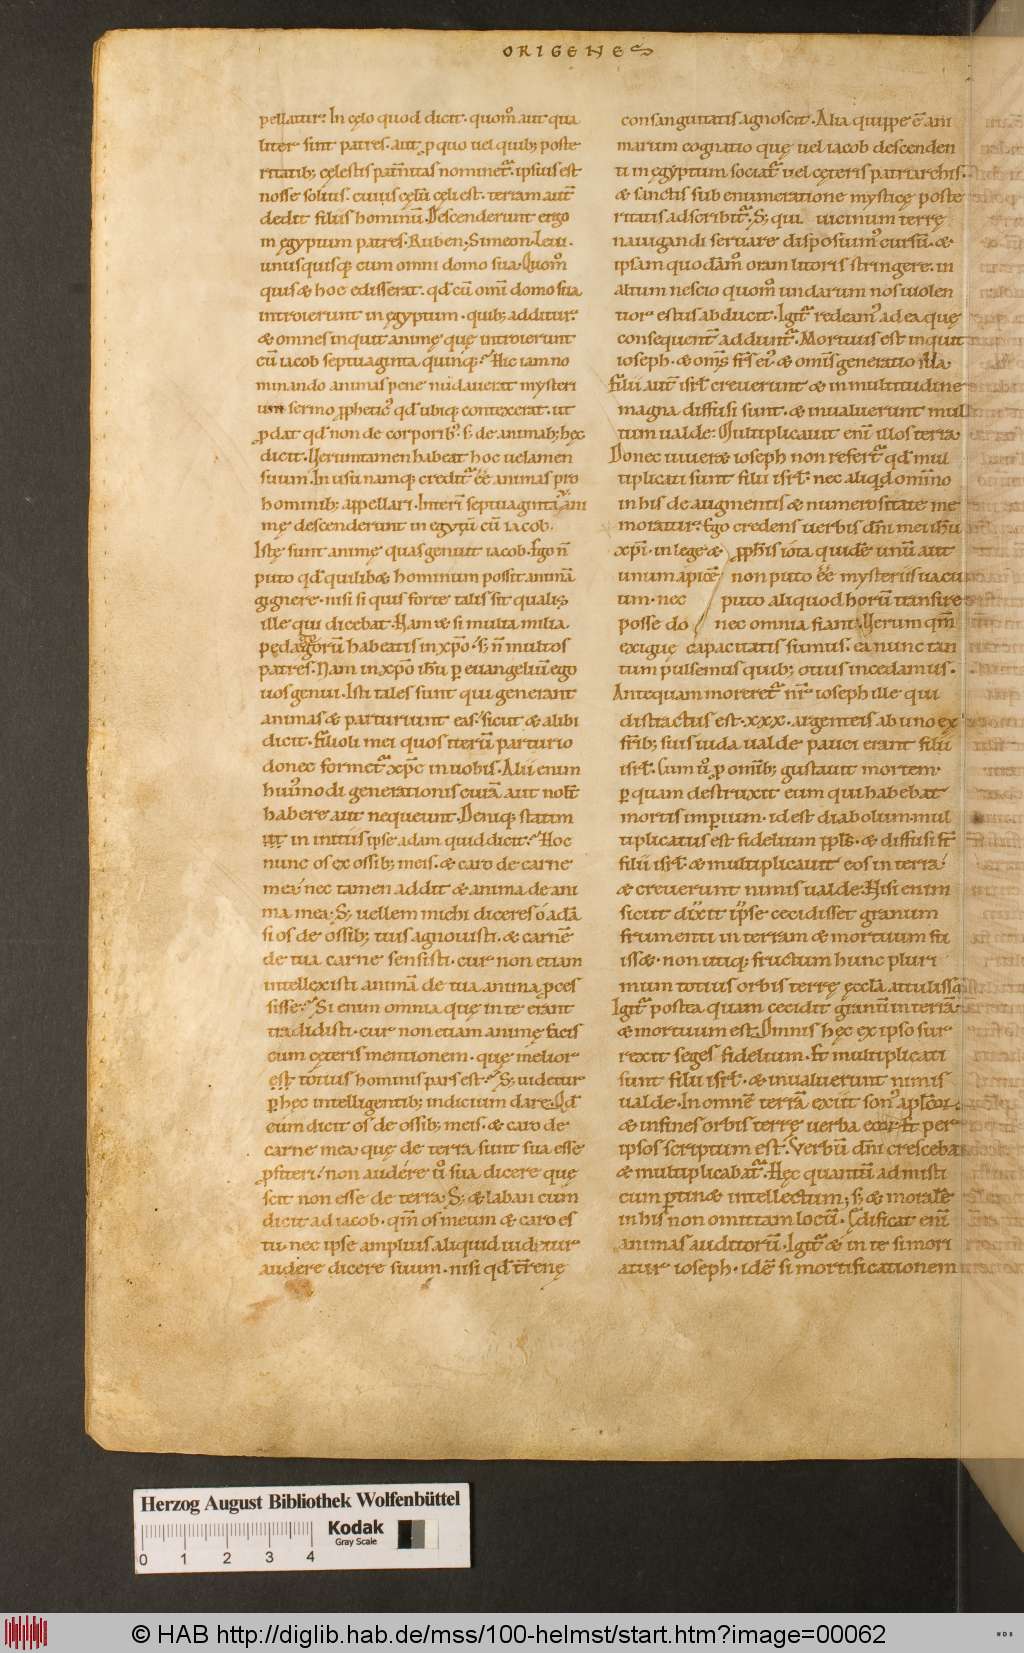 ORIGENES
pellatur? In cęlo quod dicit. quom̅ aut qua
liter sint patres. aut ꝓ quo uel quib; poste
ritatib; cęlestis pat̅nitas nominet̅. ipsius est
nosse solius. cuius cęlu̅ cęli est. terram aut̅
dedit filiis hominu̅. Descenderunt ergo
in ęgyptum patres. Ruben, Simeon. Leui.
unusquisq; cum omni domo sua. Quom̅
quis & hoc edisserat. qd̅ cu̅ om̅i domo sua
introierunt in ęgyptum. quib; additur?
& omnes inquit animę quę introierunt
cu̅ iacob septuaginta quinq;? Hic iam no
minando animas pene nudauerat mysteri
um sermo ꝓphetic᾽ qd̅ ubiq; contexerat. ut
ꝓdat qd̅ non de corporib᾽. s; de animab; hęc
dicit. Verumtamen habeat hoc uelamen
suum. In usu namq; credit̅ ee̅ animas pro
hominib; appellari. Interi̅ septuaginta ani
mę descenderunt in egyptu̅ cu̅ iacob.
Istę sunt animę quas genuit iacob. Ego n̅
puto qd̅ quilib& hominum possit anima̅
gignere. nisi si quis forte talis sit qualis
ille qui dicebat. Nam & si multa milia
pędagogoru̅ habeatis in xp̅o. s; n̅ multos
patres. Nam in xp̅o ih̅u ꝑ euangeliu̅ ego
uos genui. Isti tales sunt qui generant
animas & parturiunt eas. sicut & alibi
dicit. Filioli mei quos iteru̅ parturio
donec formet̅ xp̅c in uobis. Alii enim
hui᾽modi generationis cura̅ aut nolt̅
habere aut nequeunt. Deniq; statim
ut in initiis ipse adam quid dicit? Hoc
nunc os ex ossib; meis. & caro de carne
mea. nec tamen addit & anima de ani
ma mea. S; uellem michi diceres o ada̅
si os de ossib; tuis agnouisti. & carne̅
de tua carne sensisti. cur non etiam
intellexisti anima̅ de tua anima ꝓces
sisse? Si enim omnia quę in te erant
tradidisti. cur non etiam animę facis
cum cęteris mentionem. quę melior
est totius hominis pars est? S; uidetur
ꝑ hęc intelligentib; indicium dare. Qd̅
cum dicit os de ossib; meis. & caro de
carne mea quę de terra sunt sua esse
ꝓfiteri. non audere u᾽ sua dicere quę
scit non esse de terra. S; & laban cum
dicit ad iacob. qm̅ os meum & caro es
tu. nec ipse amplius aliquid uidetur
audere dicere suum. nisi qd̅ t̅renę
consanguitatis agnoscit. Alia quippe e̅ ani
marum cognatio quę uel iacob descenden
ti in ęgyptum sociat̅ uel cęteris patriarchis.
& sanctis sub enumeratione mysticę poste
ritatis adscribit̅. S; qui uicinum terrę
nauigandi seruare disposium᾽ cursu̅. &
ipsam quoda̅m̅ oram litoris stringere. in
altum nescio quom̅ undarum nos uiolen
tior estus abducit. Igit̅ redeam᾽ ad ea quę
consequent̅ addunt̅. Mortuus est inquit
ioseph. & om̅s fr̅s ei᾽ & om̅is generatio illa.
Filii aut̅ isrl̅ creuerunt & in multitudine
magna diffusi sunt. & inualuerunt mul
tum ualde. Multiplicauit eni̅ illos terra.
Donec uiueret ioseph non refert̅ qd̅ mul
tiplicati sunt filii isrl̅. nec aliqd̅ omi̅no
in his de augmentis & numerositate me
moratur. Ego credens uerbis dn̅i mei ih̅u
xp̅i. in lege & ꝓph̅is iota quide̅ unu̅ aut
unum apice̅ non puto ee̅ mysteriis uacu
um. nec puto aliquod horu̅ transire
posse donec omnia fiant. Verum qm̅
exiguę capacitatis sumus. ea nunc tan
tum pulsemus quib; otius incedamus.
Antequam moreret̅ nr̅ ioseph ille qui
distractus est. xxx. argenteis ab uno ex
fr̅ib; suis iuda ualde pauci erant filii
isrl̅. Cum u᾽ ꝓ om̅ib; gustauit mortem.
ꝑ quam destruxit eum qui habebat
mortis imperium. id est diabolum. mul
tiplicatus est fidelium ppls̅. & diffusi st̅
filii isrl̅. & multiplicauit eos in terra.
& creuerunt nimis ualde. Nisi enim
sicut dixit ipse cecidisset granum
frumenti in terram & mortuum fu
iss&. non utiq; fructum hunc pluri
mum totius orbis terrę ęccla̅ attulisset.
Igit̅ postea quam cecidit granu̅ in terra̅.
& mortuum est. Omnis hęc ex ipso sur
rexit seges fidelium. Et multiplicati
sunt filii isrl̅. & inualuerunt nimis
ualde. In omne̅ terra̅ exiit son᾽ aplo̅ꝝ.
& in fines orbis terrę uerba eoꝝ. Et per
ipsos scriptum est. Verbu̅ dn̅i crescebat
& multiplicabat̅. Hęc quantu̅ ad misti
cum ꝑtin& intellectum. s; & morale̅
in his non omittam locu̅. Ędificat eni̅
animas auditoru̅. Igit̅ & in te si mori
atur ioseph. ide̅ si mortificationem
Herzog August Bibliothek Wolfenbüttel
Kodak
Gray Scale
0 1 2 3 4
© HAB http://diglib.hab.de/mss/100-helmst/start.htm?image=00062